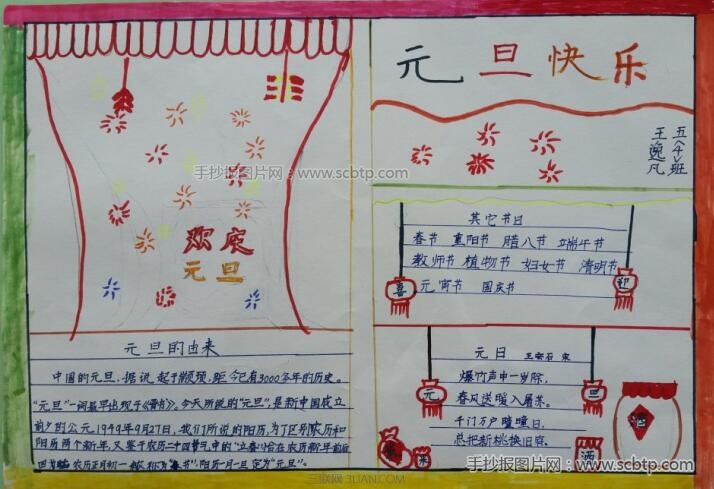 元旦快乐
五<4>班
王逸凡
手抄报图片网 - www.scbtp.com
欢庆
元旦
其它节日
春节 重阳节 腊八节 立端午节
教师节 植物节 妇女节 清明节
元宵节 国庆节
喜
迎
元旦的由来
中国的元旦,据说起于颛顼,距今已有3000多年的历史。
"元旦"一词最早出现于《晋书》。今天所说的"元旦",是新中国成立
前夕的公元1949年9月27日,我们所说的阳历,为了区别农历和
阳历两个新年,又鉴于农历二十四节气中的"立春"恰在农历新年前后
农历正月初一
称为"春节",阳历一月一日定为"元旦"。
元日 王安石 宋
爆竹声中一岁除,
春风送暖入屠苏。
千门万户曈曈日,
总把新桃换旧符。
元
旦
酒
手抄报图片网 - www.scbtp.com
三联网 3LIAN.COM